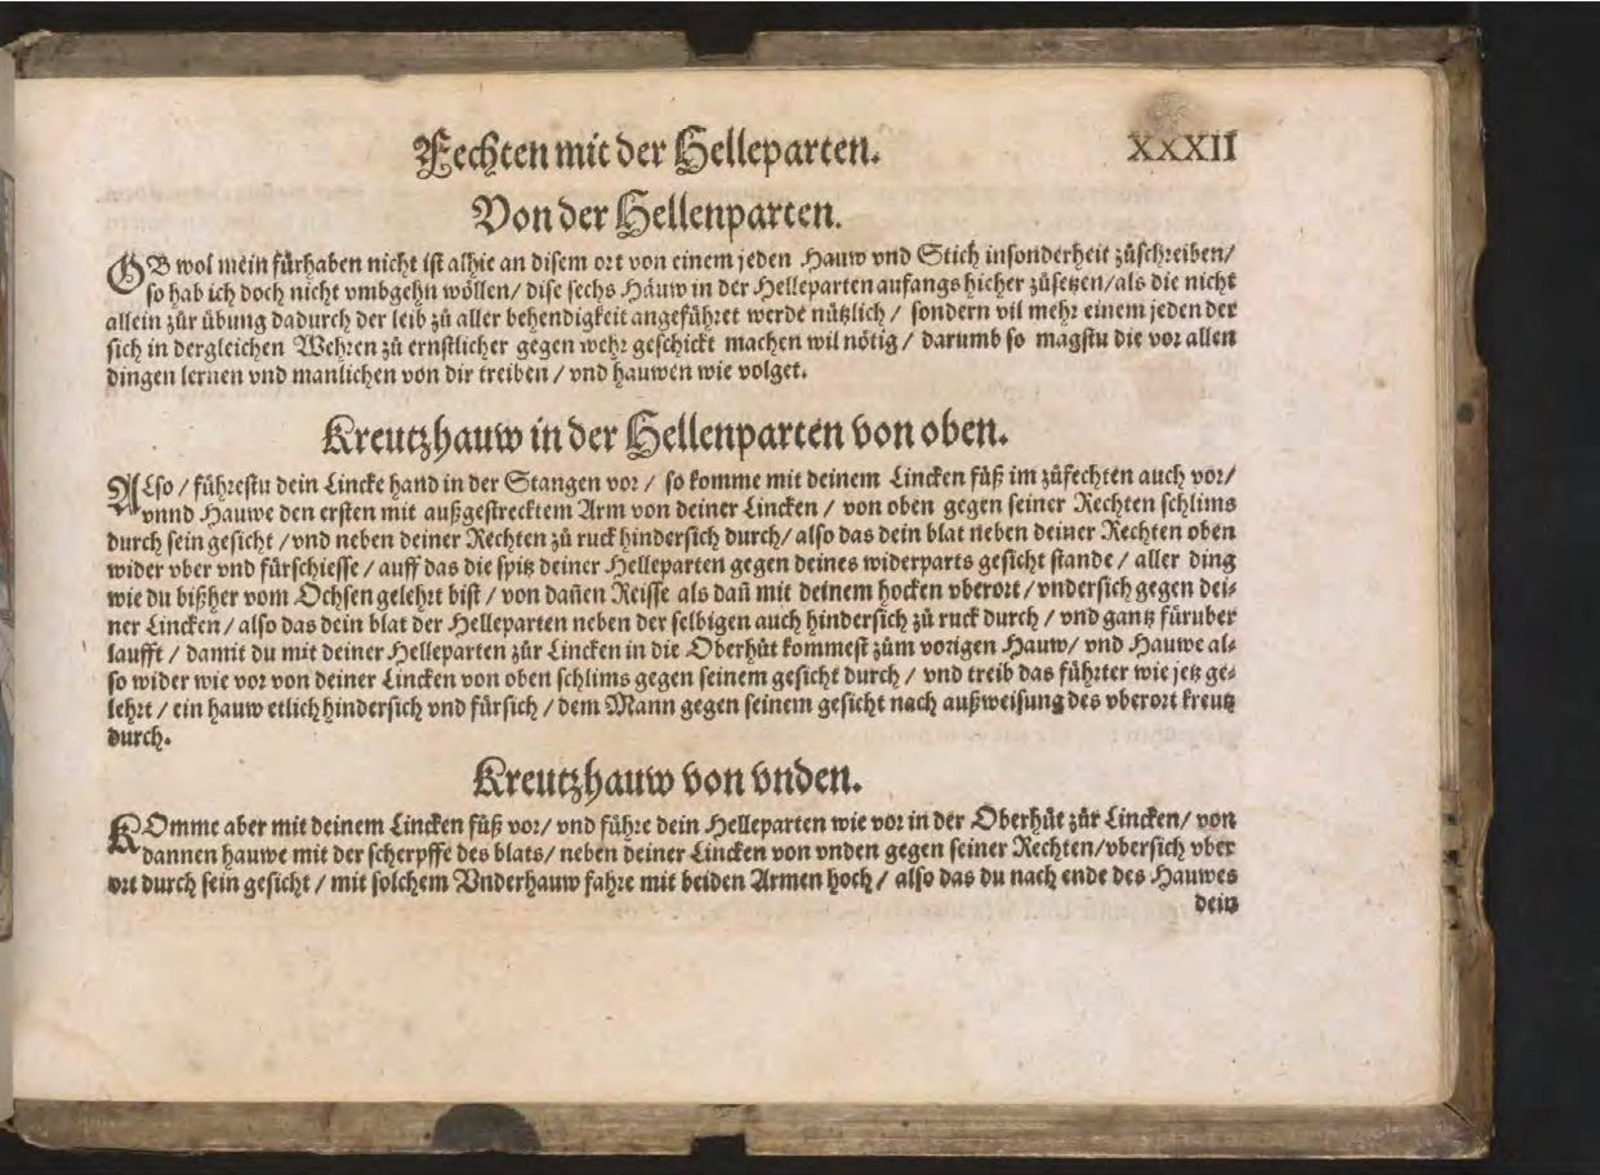 Fechten mit der Helleparten. XXXII
Von der Hellenparten.
OB wol mein fürhaben nicht ist alhie an disem ort von einem jeden Hauw vnd Stich insonderheit zůschreiben/
so hab ich doch nicht vmbgehn wöllen/ dise sechs Häuw in der Helleparten anfangs hieher zůsetzen/als die nicht
allein zůr übung dadurch der leib zů aller behendigkeit angeführet werde nützlich / sondern vil mehr einem jeden der
sich in dergleichen Wehren zů ernstlicher gegen wehr geschickt machen wil nötig / darumb so magstu die vor allen
dingen lernen vnd manlichen von dir treiben / vnd hauwen wie volget.
Kreutzhauw in der Hellenparten von oben.
ALso / führestu dein Lincke hand in der Stangen vor / so komme mit deinem Lincken fůß im zůfechten auch vor/
vnnd Hauwe den ersten mit außgestrecktem Arm von deiner Lincken / von oben gegen seiner Rechten schlims
durch sein gesicht / vnd neben deiner Rechten zů ruck hindersich durch/ also das dein blat neben deiner Rechten oben
wider vber vnd fürschiesse / auff das die spitz deiner Helleparten gegen deines widerparts gesicht stande / aller ding
wie du bißher vom Ochsen gelehrt bist / von dañen Reisse als dañ mit deinem hocken vberort / vndersich gegen dei⸗
ner Lincken / also das dein blat der Helleparten neben der selbigen auch hindersich zů ruck durch / vnd gantz fürüber
laufft / damit du mit deiner Helleparten zůr Lincken in die Oberhůt kommest zům vorigen Hauw/ vnd Hauwe al⸗
so wider wie vor von deiner Lincken von oben schlims gegen seinem gesicht durch / vnd treib das führter wie jetz ge⸗
lehrt / ein hauw etlich hindersich vnd fürsich / dem Mann gegen seinem gesicht nach außweisung des vberort kreutz
durch.
Kreutzhauw von vnden.
KOmme aber mit deinem Lincken fůß vor/ vnd führe dein Helleparten wie vor in der Oberhůt zůr Lincken/ von
dannen hauwe mit der scherpffe des blats/ neben deiner Lincken von vnden gegen seiner Rechten/vbersich vber
ort durch sein gesicht / mit solchem Vnderhauw fahre mit beiden Armen hoch / also das du nach ende des Hauwes
dein